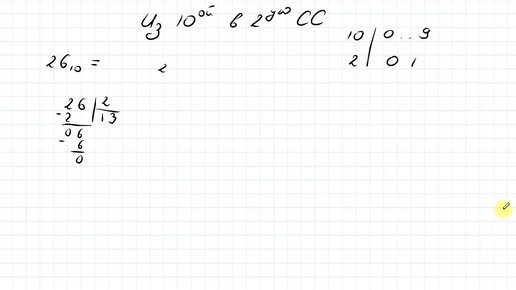 Из 10ой в 2ую СС
10 | 0 .. 9
2 | 0 1
26₁₀ = ₂
26 | 2
- 2 | 13
06
- 6
0